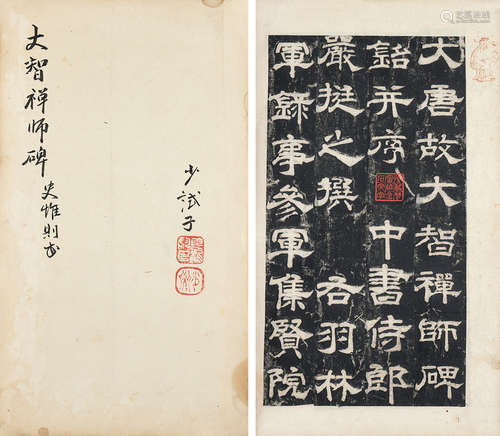 大智禅师碑
史惟則书
大唐故大智禪師碑
銘并序 中書侍郎
嚴挺之撰 右羽林
軍錄事參軍集賢院